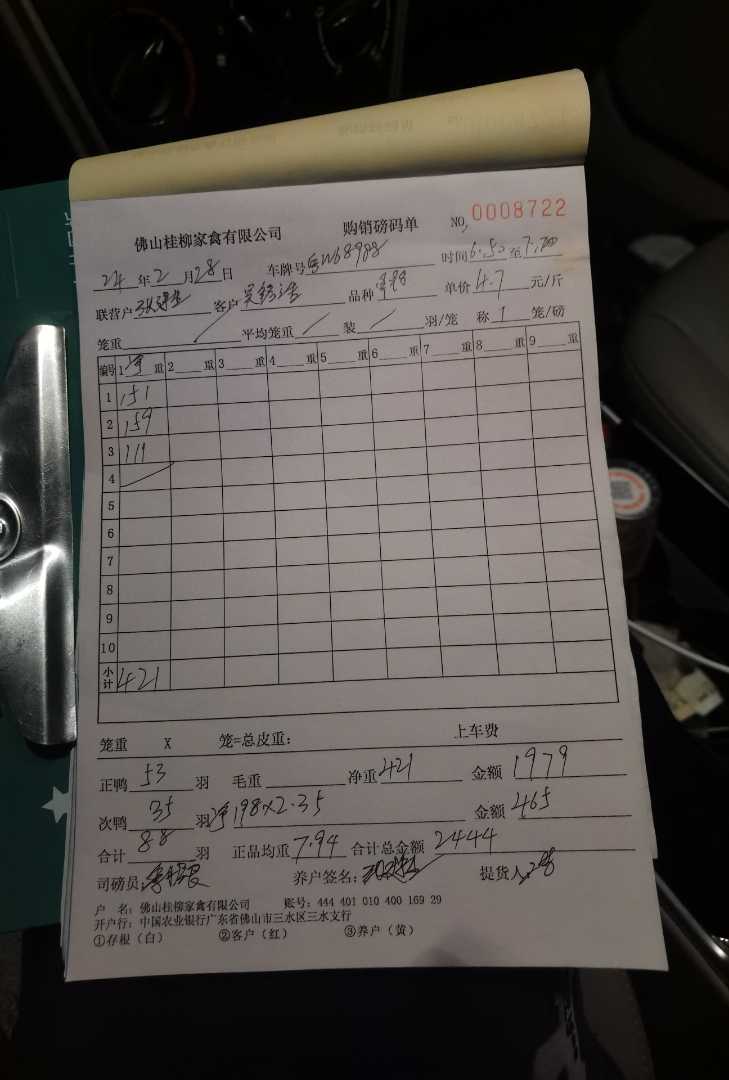 佛山桂柳家禽有限公司 购销磅码单 NO, 0008722
24年2月28日 车牌号 68988 时间6.50至7.20
联营户 客户 吴 品种 单价4.7元/斤
笼重 平均笼重 装 羽/笼 称1笼/磅
编号 1净重 2重 3重 4重 5重 6重 7重 8重 9重
1 151
2 159
3 111
4
5
6
7
8
9
10
小计 421
笼重 X 笼=总皮重： 上车费
正鸭53羽 毛重 净重421 金额1979
次鸭35羽 净198×2.35 金额465
合计88羽 正品均重7.94 合计总金额2444
司磅员： 养户签名： 提货人：
户 名：佛山桂柳家禽有限公司 账号：444 401 010 400 169 29
开户行：中国农业银行广东省佛山市三水区三水支行
①存根（白） ②客户（红） ③养户（黄）